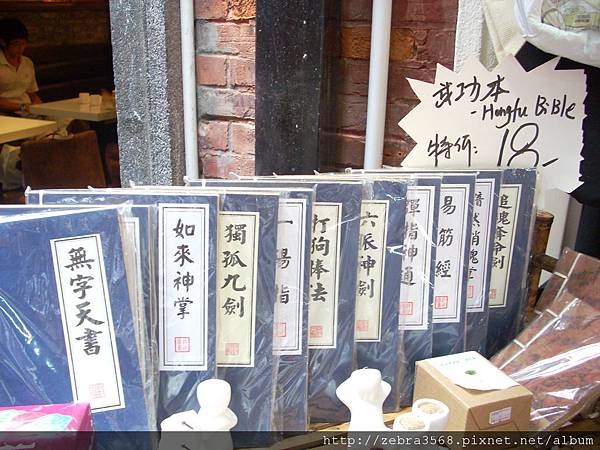 武功本
- Kongfu BiBle
特价: 18.-
無字天書
如來神掌
獨孤九劍
一陽指
打狗棒法
六脈神劍
彈指神通
易筋經
黯然消魂掌
追魂奪命劍
http://redzebra3568.pixnet.net/album